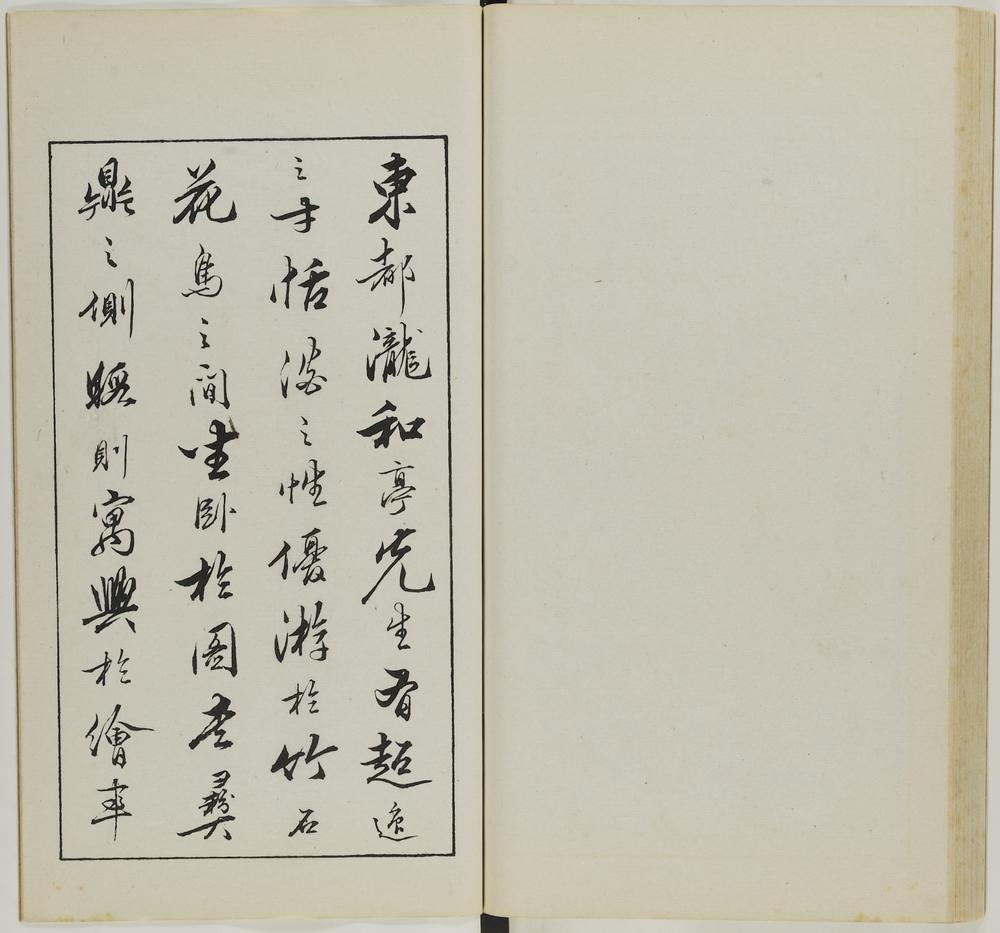 東都瀧和亭先生有超逸
之才恬澹之性優游於竹石
花鳥之間坐臥於圖書彝
鼎之側
則寓興於繪事